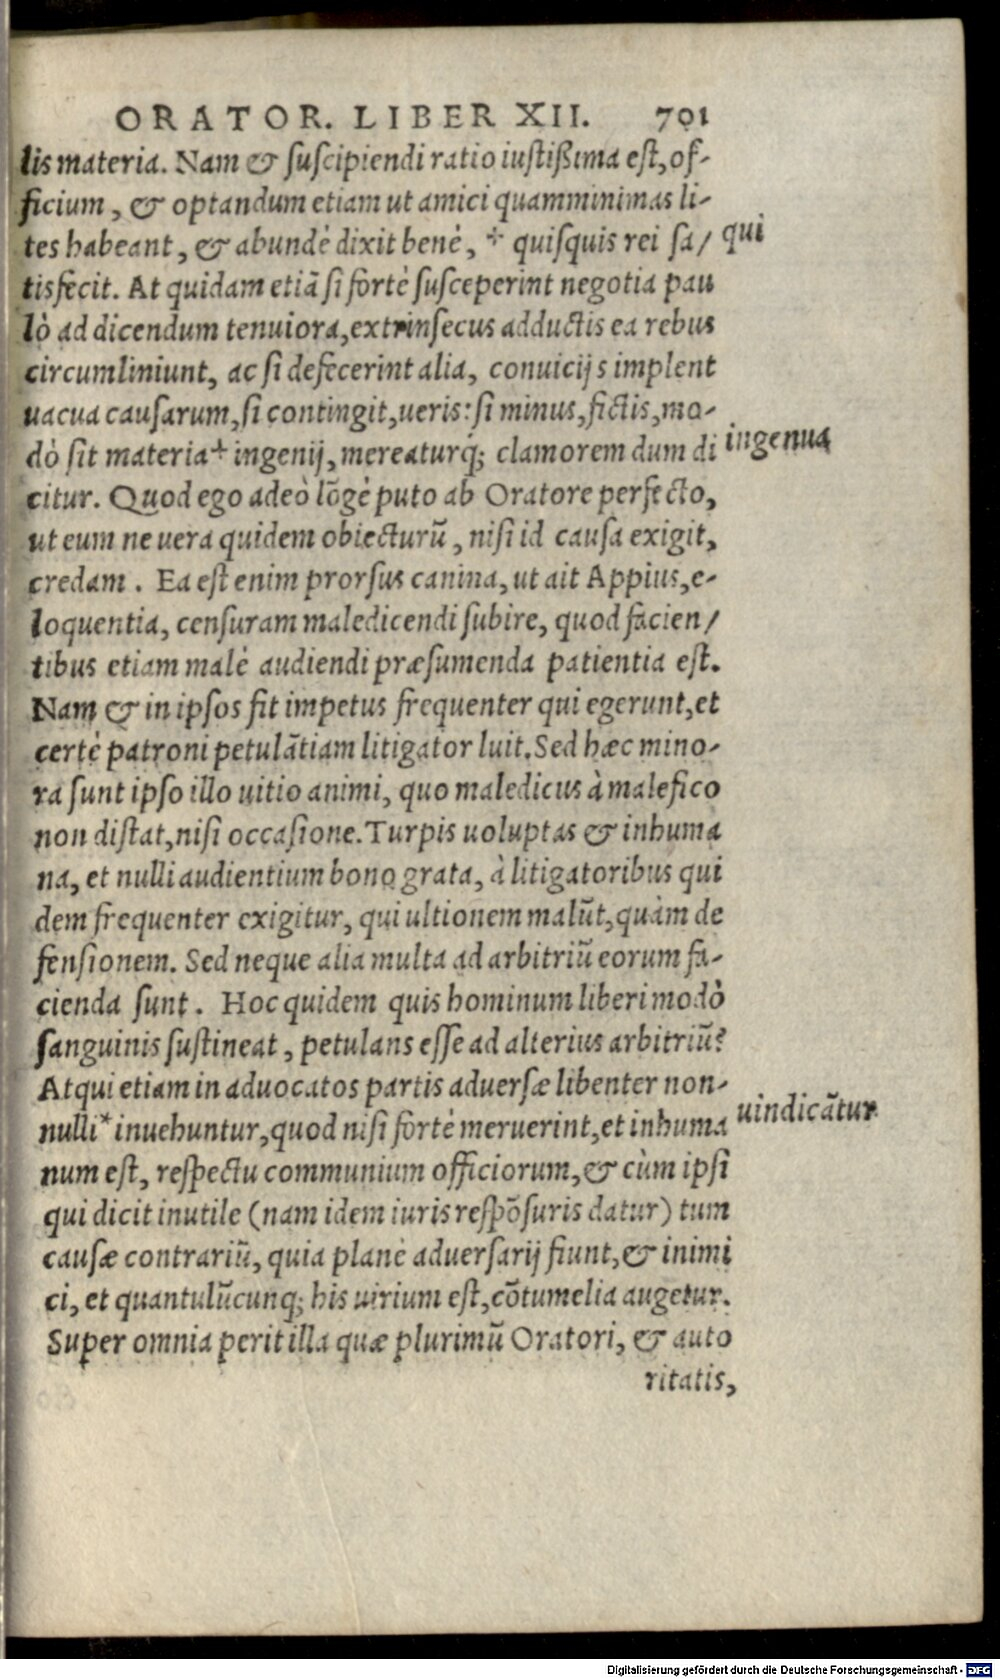 ORATOR. LIBER XII. 701
lis materia. Nam & suscipiendi ratio iustißima est, of-
ficium, & optandum etiam ut amici quamminimas li-
tes habeant, & abundè dixit benè, ⁜ quisquis rei sa/ qui
tisfecit. At quidam etiã si fortè susceperint negotia pau
lò ad dicendum tenuiora, extrinsecus adductis ea rebus
circumliniunt, ac si defecerint alia, conuicijs implent
uacua causarum, si contingit, ueris: si minus, fictis, mo-
dò sit materia⁜ ingenij, mereaturq́; clamorem dum di ingenua
citur. Quod ego adeò lõgè puto ab Oratore perfecto,
ut eum ne uera quidem obiecturũ, nisi id causa exigit,
credam. Ea est enim prorsus canina, ut ait Appius, e-
loquentia, censuram maledicendi subire, quod facien/
tibus etiam malè audiendi præsumenda patientia est.
Nam & in ipsos fit impetus frequenter qui egerunt, et
certè patroni petulãtiam litigator luit. Sed hæc mino-
ra sunt ipso illo uitio animi, quo maledicus à malefico
non distat, nisi occasione. Turpis uoluptas & inhuma
na, et nulli audientium bono grata, à litigatoribus qui
dem frequenter exigitur, qui ultionem malũt, quàm de
fensionem. Sed neque alia multa ad arbitriũ eorum fa-
cienda sunt. Hoc quidem quis hominum liberi modò
sanguinis sustineat, petulans esse ad alterius arbitriũ?
Atqui etiam in aduocatos partis aduersæ libenter non-
nulli* inuehuntur, quod nisi fortè meruerint, et inhuma uindicãtur
num est, respectu communium officiorum, & cùm ipsi
qui dicit inutile (nam idem iuris respõsuris datur) tum
causæ contrariũ, quia planè aduersarij fiunt, & inimi
ci, et quantulũcunq; his uirium est, cõtumelia augetur.
Super omnia perit illa quæ plurimũ Oratori, & auto
ritatis,
Digitalisierung gefördert durch die Deutsche Forschungsgemeinschaft - DFG